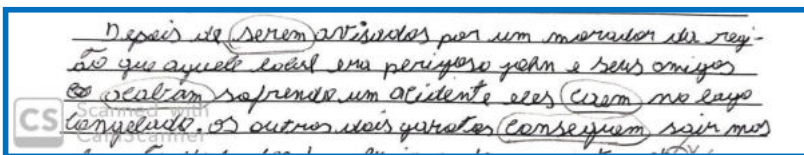 Depois de serem avisados por um morador da regi-
ão que aquele local era perigoso john e seus amigos
acabam sofrendo um acidente eles caem no lago
congelado. os outros dois garotos conseguem sair mas
CS Scanned with
CamScanner